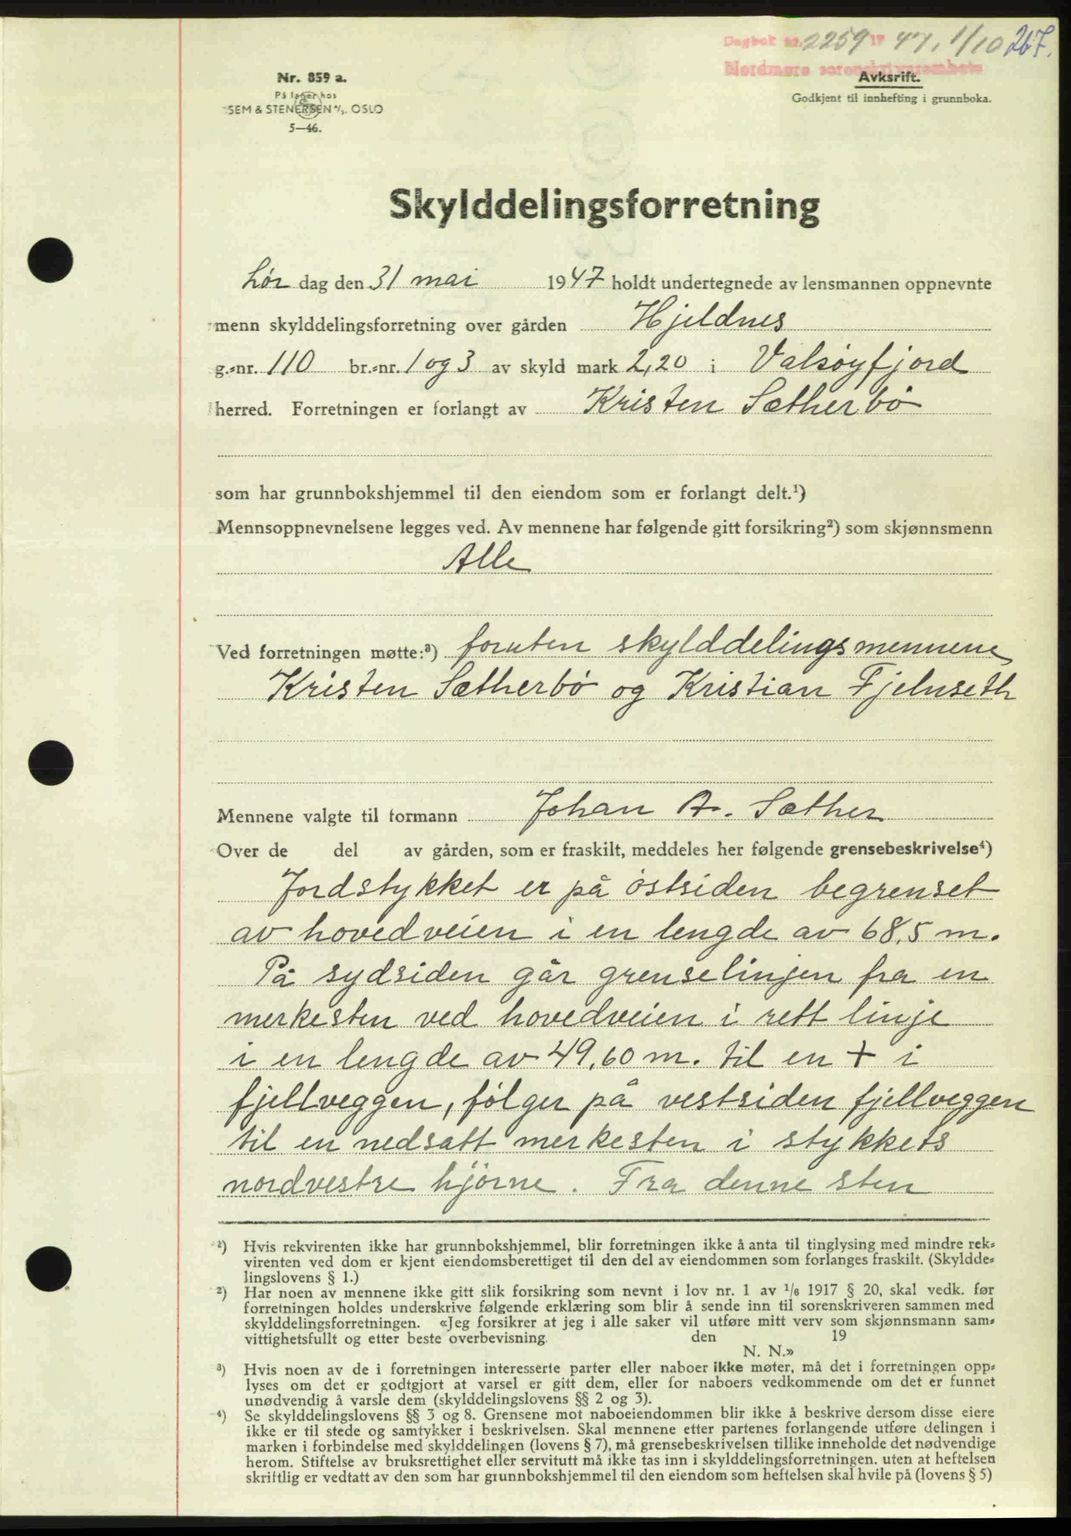 Dagbok nr. 2259 19 47, 1/10 267.
Nordmøre sorenskriverembete
Nr. 859 a.
På lager hos
SEM & STENERSEN A/S. OSLO
5—46.
Avksrift.
Godkjent til innhefting i grunnboka.
Skylddelingsforretning
Lør dag den 31 mai 1947 holdt undertegnede av lensmannen oppnevnte
menn skylddelingsforretning over gården Hjeldnes
g.-nr. 110 br.-nr. 1 og 3 av skyld mark 2,20 i Valsøyfjord
herred. Forretningen er forlangt av Kristen Sætherbö
som har grunnbokshjemmel til den eiendom som er forlangt delt.¹)
Mennsoppnevnelsene legges ved. Av mennene har følgende gitt forsikring²) som skjønnsmenn
Alle
Ved forretningen møtte:³) foruten skylddelingsmennene
Kristen Sætherbö og Kristian Fjelnseth
Mennene valgte til formann Johan A. Sæther
Over de del av gården, som er fraskilt, meddeles her følgende grensebeskrivelse⁴)
Jordstykket er på östsiden begrenset
av hovedveien i en lengde av 68,5 m.
På sydsiden går grenselinjen fra en
merkesten ved hovedveien i rett linje
i en lengde av 49,60 m. til en + i
fjellveggen, fölger på vestsiden fjellveggen
til en nedsatt merkesten i stykkets
nordvestre hjörne. Fra denne sten
¹) Hvis rekvirenten ikke har grunnbokshjemmel, blir forretningen ikke å anta til tinglysing med mindre rek-
virenten ved dom er kjent eiendomsberettiget til den del av eiendommen som forlanges fraskilt. (Skyldde-
lingslovens § 1.)
²) Har noen av mennene ikke gitt slik forsikring som nevnt i lov nr. 1 av 1/6 1917 § 20, skal vedk. før
forretningen holdes underskrive følgende erklæring som blir å sende inn til sorenskriveren sammen med
skylddelingsforretningen. «Jeg forsikrer at jeg i alle saker vil utføre mitt verv som skjønnsmann sam-
vittighetsfullt og etter beste overbevisning. den 19
N. N.»
³) Hvis noen av de i forretningen interesserte parter eller naboer ikke møter, må det i forretningen opp-
lyses om det er godtgjort at varsel er gitt dem, eller for naboers vedkommende om det er funnet
unødvendig å varsle dem (skylddelingslovens §§ 2 og 3).
⁴) Se skylddelingslovens §§ 3 og 8. Grensene mot naboeiendommen blir ikke å beskrive dersom disse eiere
ikke er til stede og samtykker i beskrivelsen. Skal mennene etter partenes forlangende utføre delingen i
marken i forbindelse med skylddelingen (lovens § 7), må grensebeskrivelsen tillike inneholde det nødvendige
herom. Stiftelse av bruksrettighet eller servitutt må ikke tas inn i skylddelingsforretningen. uten at heftelsen
skriftlig er vedtatt av den som har grunnbokshjemmel til den eiendom som heftelsen skal hvile på (lovens § 5)